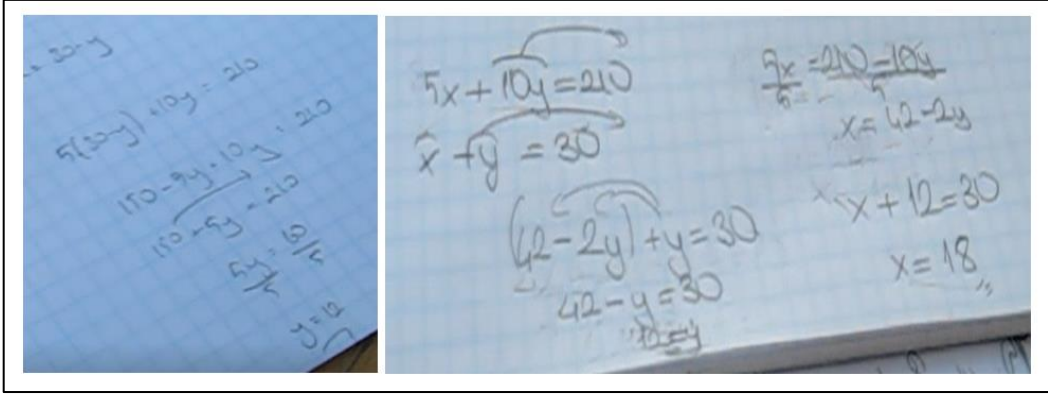 x = 30-y
5(30-y) + 10y = 210
150 - 5y + 10y = 210
150 - 5y = 210
5y/5 = 60/5
y = 12
5x + 10y = 210
x + y = 30
(42 - 2y) + y = 30
42 - y = 30
12 = y
5x/5 = 210 - 10y/5
x = 42 - 2y
x + 12 = 30
x = 18